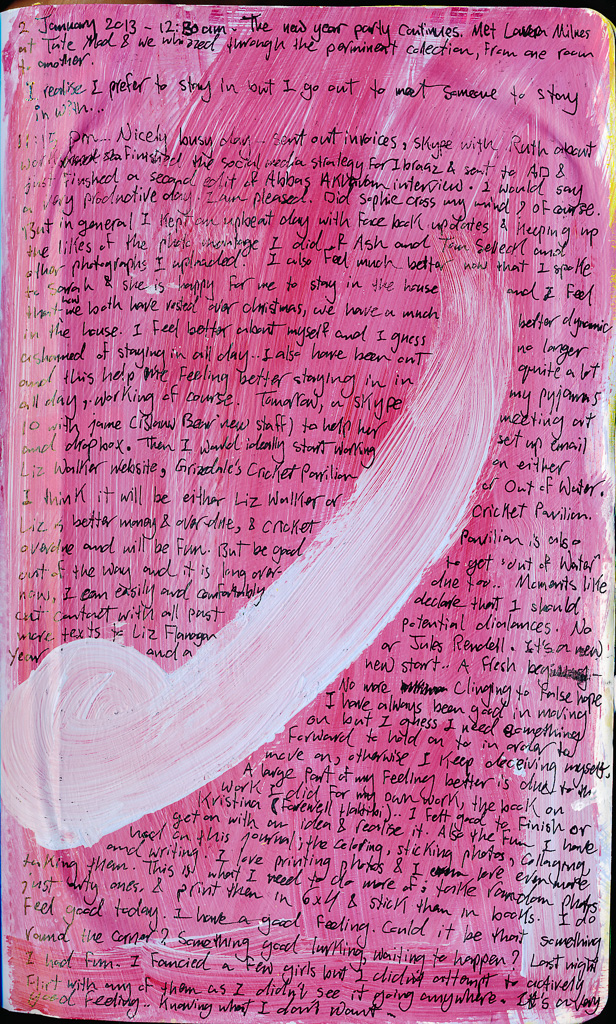 2 January 2013 - 12:30am - The new year party continues. Met Lauren Milnes
at Tate Mod & we whizzed through the perminent collection, from one room
to another.
I realise I prefer to stay in but I go out to meet someone to stay
in with...
pm... Nicely busy day - sent out invoices, skype with Ruth about
work finished the social media strategy for Ibraaz & sent to AD &
just finished a second edit of Abbas Akhavan interview. I would say
a very productive day. I am pleased. Did Sophie cross my mind? of course.
But in general I kept an upbeat day with face book updates & keeping up
the likes of the photo montage I did of Ash and Tom Selleck and
other photographs I uploaded. I also feel much better now that I spoke
to Sarah & she is happy for me to stay in the house and I feel
that now we both have rested over christmas, we have a much better dynamic
in the house. I feel better about myself and I guess no longer
ashamed of staying in all day. I also have been out quite a lot
and this help me feeling better staying in in my pyjamas
all day, working of course. Tomorrow, a skype meeting at
10 with Jame (Islaw Bear new staff) to help her set up email
and dropbox. Then I would ideally start working on either
Liz Walker website, Grizedale's Cricket Pavilion or Out of Water.
I think it will be either Liz Walker or Cricket Pavilion.
Liz is better money & overdue, & Cricket Pavilion is also
overdue and will be fun. But be good to get 'out of Water'
out of the way and it is long over-due too.. Moments like
now, I can easily and comfortably declare that I should
cut contact with all past potential dialances. No
more texts to Liz Flanagan or Jules Rendell. It's a new
year and a new start. A fresh beginning -
No more clinging to false hope
I have always been good in moving
on but I guess I need something
forward to hold on to in order to
move on, otherwise I keep deceiving myself,
A large part of my feeling better is due to the
work I did for my own work, the book on
Kristina (farewell Habibi).. I felt good to finish or
get on with an idea & realise it. Also the fun I have
had on this journal; the coloring, sticking photos, collaging
and writing. I love printing photos & I love even more
taking them. This is what I need to do more of; take random photos
just arty ones. & print them in 6x4 & stick them in books. I do
feel good today. I have a good feeling. Could it be that something
round the corner? Something good lurking, waiting to happen? Last night
I had fun. I fancied a few girls but I didn't attempt to actively
flirt with any of them as I didn't see it going anywhere. It's a very
good feeling.. Knowing what I don't want -